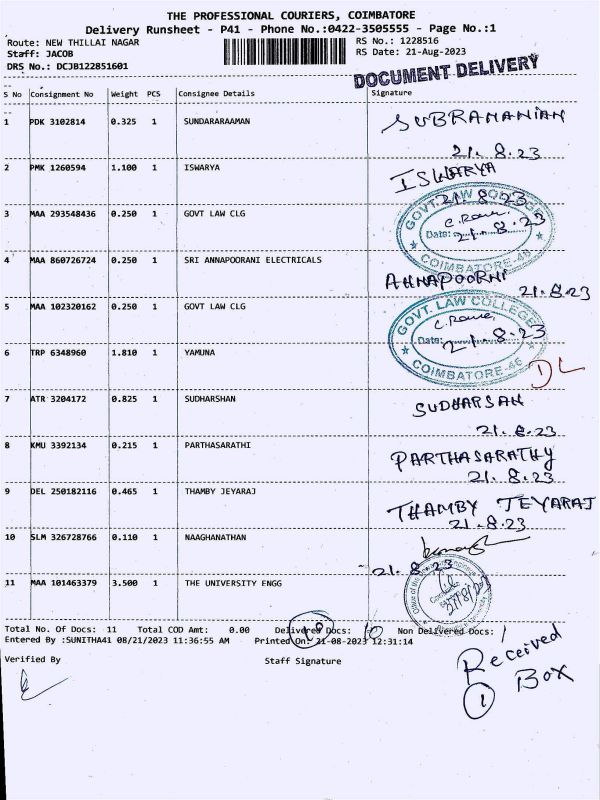 THE PROFESSIONAL COURIERS, COIMBATORE
Delivery Runsheet - P41 - Phone No.:0422-3505555 - Page No.:1
Route: NEW THILLAI NAGAR
Staff: JACOB
DRS No.: DCJB122851601
RS No.: 1228516
RS Date: 21-Aug-2023
DOCUMENT DELIVERY
S No Consignment No Weight PCS Consignee Details Signature
1 PDK 3102814 0.325 1 SUNDARARAAMAN SUBRAMANIAN
21.8.23
2 PMK 1260594 1.100 1 ISWARYA ISWARYA
21.8.23
3 MAA 293548436 0.250 1 GOVT LAW CLG
GOVT. LAW COLLEGE
Date: 21.8.23
COIMBATORE-46
4 MAA 860726724 0.250 1 SRI ANNAPOORANI ELECTRICALS
ANNAPOORNI
21.8.23
5 MAA 102320162 0.250 1 GOVT LAW CLG
GOVT. LAW COLLEGE
Date: 21.8.23
COIMBATORE-46
6 TRP 6348960 1.810 1 YAMUNA DL
7 ATR 3204172 0.825 1 SUDHARSHAN SUDHARSAN
21.8.23
8 KMU 3392134 0.215 1 PARTHASARATHI PARTHASARATHY
21.8.23
9 DEL 250182116 0.465 1 THAMBY JEYARAJ THAMBY JEYARAJ
21.8.23
10 SLM 326728766 0.110 1 NAAGHANATHAN
21.8.23
11 MAA 101463379 3.500 1 THE UNIVERSITY ENGG
Total No. Of Docs: 11 Total COD Amt: 0.00 Delivered Docs: 10 Non Delivered Docs: 1
Entered By :SUNITHA41 08/21/2023 11:36:55 AM Printed On: 21-08-2023 12:31:14
Verified By Staff Signature
Received
1 Box